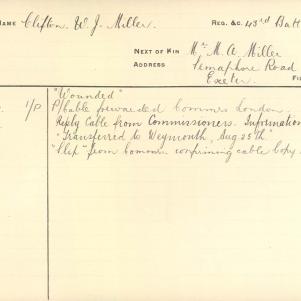 NAME Clifton, W. J. Miller. REG. &C. 43rd Batt
NEXT OF KIN Mr. M. A. Miller
ADDRESS Semaphore Road
Exeter.
"Wounded"
1/P P/Cable forwarded Commrs London.
Reply Cable from Commissioners. Information
"Transferred to Weymouth, Aug 25th"
from Comomrs confirming cable Copy